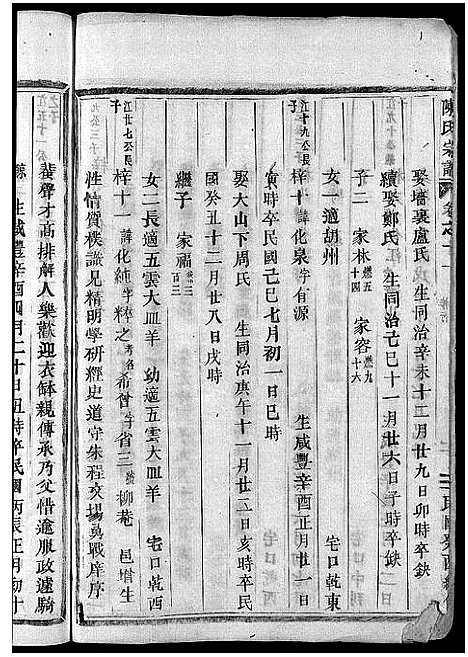 陳氏宗譜
娶墻裏盧氏 生同治辛未十二月廿九日卯時卒缺
續娶鄭氏 生同治己巳十一月廿六日子時卒缺
子二 家林 燃五十四 家容 燃九十六
女一適胡州 宅口乾東
江十九公長子
梓十 諱化泉 字有源 生咸豐辛酉正月廿一日
寅時卒民國己巳七月初一日巳時
娶大山下周氏 生同治庚午十一月廿二日亥時卒民
國癸丑十二月廿八日戌時
繼子 家福
女二長適五雲大皿羊 幼適五雲大皿羊 宅口乾西
江廿七公長子
梓十一 諱化純 字粹之 考名希曾 字省三 號柳菴 邑增生
性情質樸識見精明學研經史道守朱程文場鏖戰庠序
蜚聲才高掛榜人樂歡迎衣缽親傳承乃父惜逾服政遽騎
鯨 生咸豐辛酉四月二十日丑時卒民國丙辰正月初十